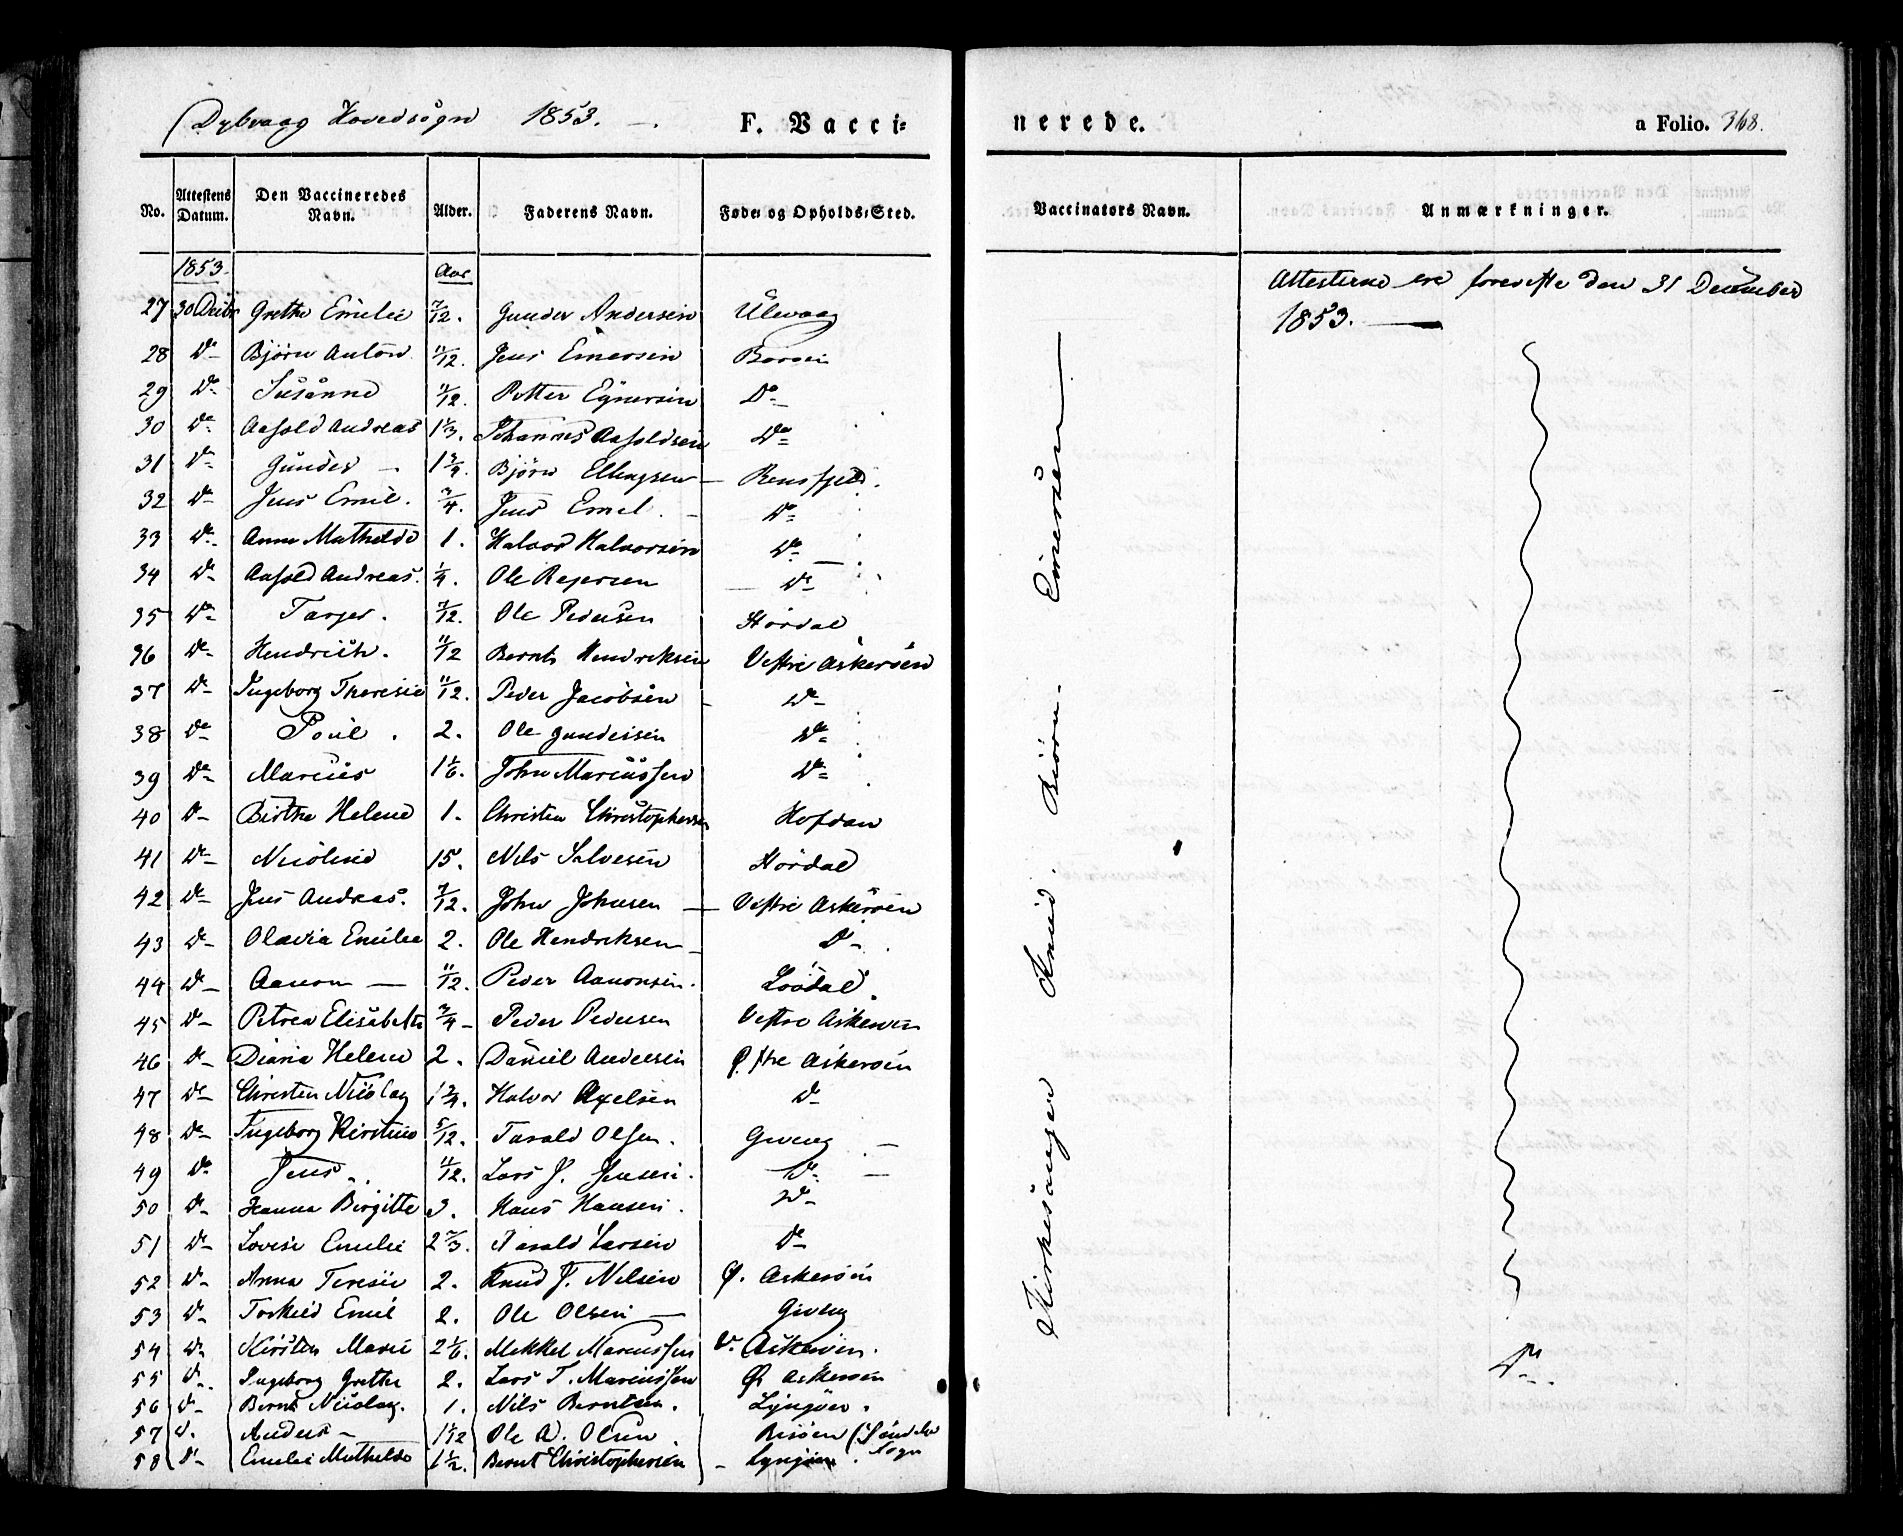 Dybvaag Hovedsogn 1853. F. Vacci- nerede. a Folio. 368.
No. Attestens Datum. Den Vaccineredes Navn. Alder. Faderens Navn. Føde- og Opholds-Sted. Vaccinators Navn. Anmærkninger.
1853. Aar
Attesterne ere foreviste den 31 December
1853.
27 30 Decbr Grethe Emilie 7/12. Gunder Andersen Ulevaag
28 Do Bjørn Anton 11/12. Jens Einersen
29 Do Susanne 11/12. Petter Do
30 Do Aasold Andreas 1 1/3. Johannes Aasoldsen Do
31 Do Gunder 1 3/4. Bjørn Ellingsen Rensfjeld.
32 Do Jens Emil. 3/4. Jens Emil. Do
33 Do Anne Mathilde 1. Halvor Halvorsen Do
34 Do Aasold Andreas. 1/4. Ole Rejersen Do
35 Do Tarjer. 7/12. Ole Pedersen Hördal
36 Do Hendrich. 11/12 Bernt Hendriksen Vestre Askerøen
37 Do Ingeborg Theresie 11/12. Peder Jacobsen Do
38 Do Poul. 2. Ole Gundersen Do
39 Do Marcus 1 1/6. John Marcussen Do
40 Do Birthe Helene 1. Christen Christophersen Hofdan
41 Do Nicoline 15. Nils Salvesen Hördal
42 Do Jens Andreas. 7/12. John Johnsen Vestre Askerøen
43 Do Olavia Emilie 2. Ole Hendriksen Do
44 Do Aanon 11/12. Peder Aanonsen. Löödal.
45 Do Petrea Elisabeth 3/4 Peder Pedersen Vestre Askerøen
46 Do Diana Helene 2. Daniel Andersen Østre Askerøen
47 Do Christen Nicolay 1 3/4. Halvor Axelsen Do
48 Do Ingeborg Kirstine 5/12. Tarald Olsen. Giveng
49 Do Jens 11/12. Lars J. Jensen. Do
50 Do Hanna Birgitte 3. Hans Hansen. Do
51 Do Lovise Emilie 2 2/3. Tarald Larsen Do
52 Do Anna Teresie 2. Knud J. Nilsen Ø. Askerøen
53 Do Torkild Emil 2. Ole Olsen Giveng
54 Do Kirsten Marie 2 1/6. Mekkel Marcussen V. Askerøen.
55 Do Ingeborg Grethe 2. Lars T. Marcussen Ø. Askerøen
56 Do Bernt Nicolay. 1. Nils Berntsen. Lyngøer.
57 Do Anders 1 1/12 Ole A. Olsen Risøen (Søndeler Sogn
58 Do Emilie Mathilde 1 1/2. Bernt Christophersen Lyngøer.
Kirkesanger Knud Biörn Einersen
Do